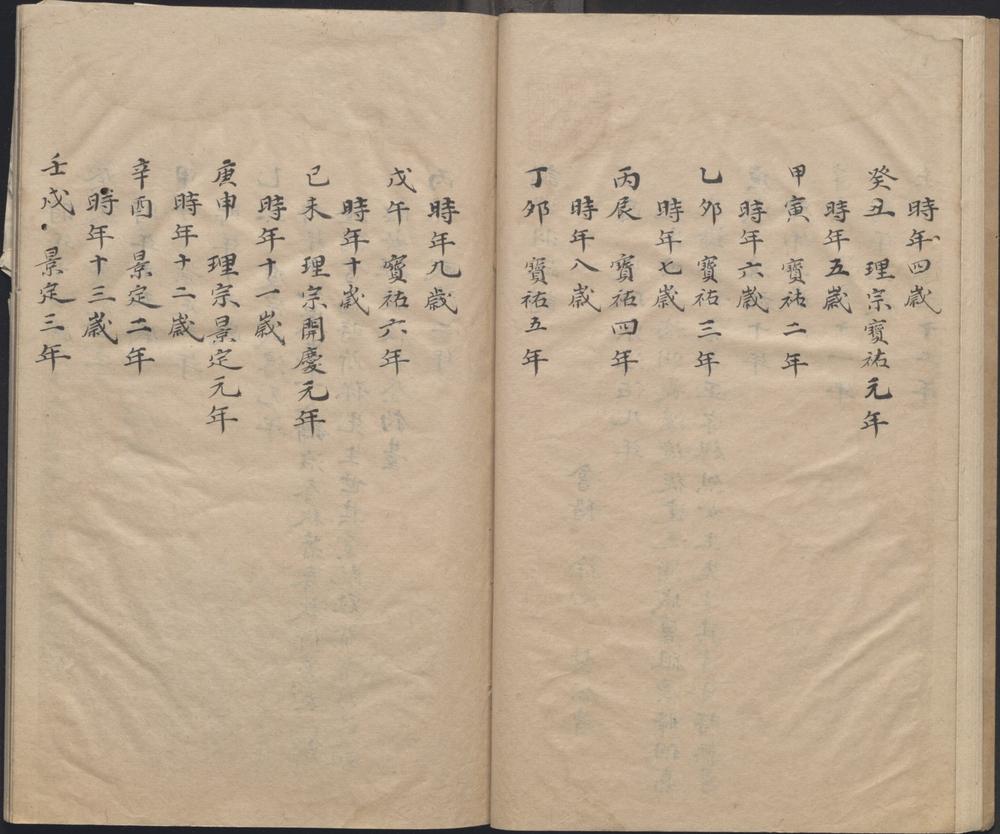 時年四歲
癸丑 理宗寳祐元年
時年五歲
甲寅 寳祐二年
時年六歲
乙夘 寳祐三年
時年七歲
丙辰 寳祐四年
時年八歲
丁夘 寳祐五年
時年九歲
戊午 寳祐六年
時年十歲
已未 理宗開慶元年
時年十一歲
庚申 理宗景定元年
時年十二歲
辛酉 景定二年
時年十三歲
壬戌 景定三年